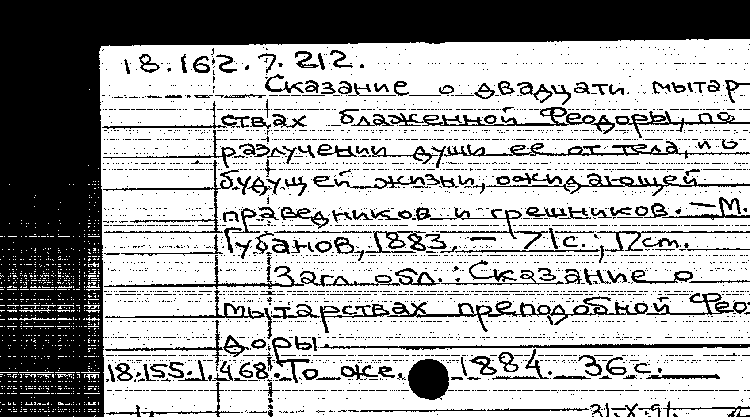 18.162.7.212.
Сказание о двадцати мытар
ствах блаженной Феодоры, по
разлучении души ее от тела, и о
будущей жизни, ожидающей
праведников и грешников. — М.
Губанов, 1883. — 71с.; 17см.
Загл. обл.: Сказание о
мытарствах преподобной Фео
доры.
18.155.1.468. То же. 1884. 36с.
31-X-91